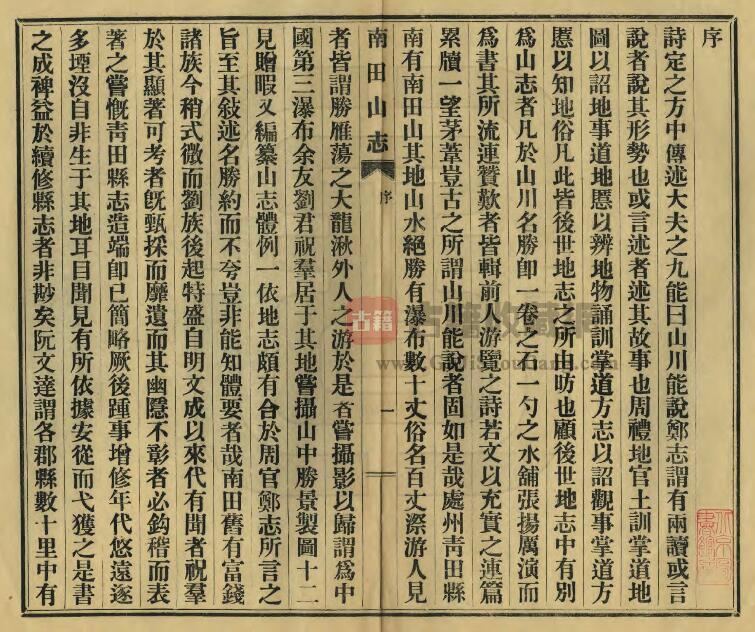 序
詩定之方中傳述大夫之九能曰山川能說鄭志謂有兩讀或言
說者說其形勢也或言述者述其故事也周禮地官土訓掌道地
圖以詔地事道地慝以辨地物誦訓掌道方志以詔觀事掌道方
慝以知地俗凡此皆後世地志之所由昉也顧後世地志中有別
為山志者凡於山川名勝卽一卷之石一勺之水舖張揚厲演而
為書其所流連贊歎者皆輯前人游覽之詩若文以充實之連篇
累牘一望茅葦豈古之所謂山川能說者固如是哉處州靑田縣
南有南田山其地山水絕勝有瀑布數十丈俗名百丈漈游人見
南田山志
序
一
者皆謂勝雁蕩之大龍湫外人之游於是者嘗攝影以歸謂爲中
國第三瀑布余友劉君祝羣居于其地嘗攝山中勝景製圖十二
見贈暇又編纂山志體例一依地志頗有合於周官鄭志所言之
旨至其敍述名勝約而不夸豈非能知體要者哉南田舊有富錢
諸族今稍式微而劉族後起特盛自明文成以來代有聞者祝羣
於其顯著可考者旣甄採而靡遺而其幽隱不彰者必鈎稽而表
著之嘗慨靑田縣志造端卽已簡略厥後踵事增修年代悠遠遂
多堙沒自非生于其地耳目聞見有所依據安從而弋獲之是書
之成裨益於續修縣志者非尠矣阮文達謂各郡縣數十里中有
古籍